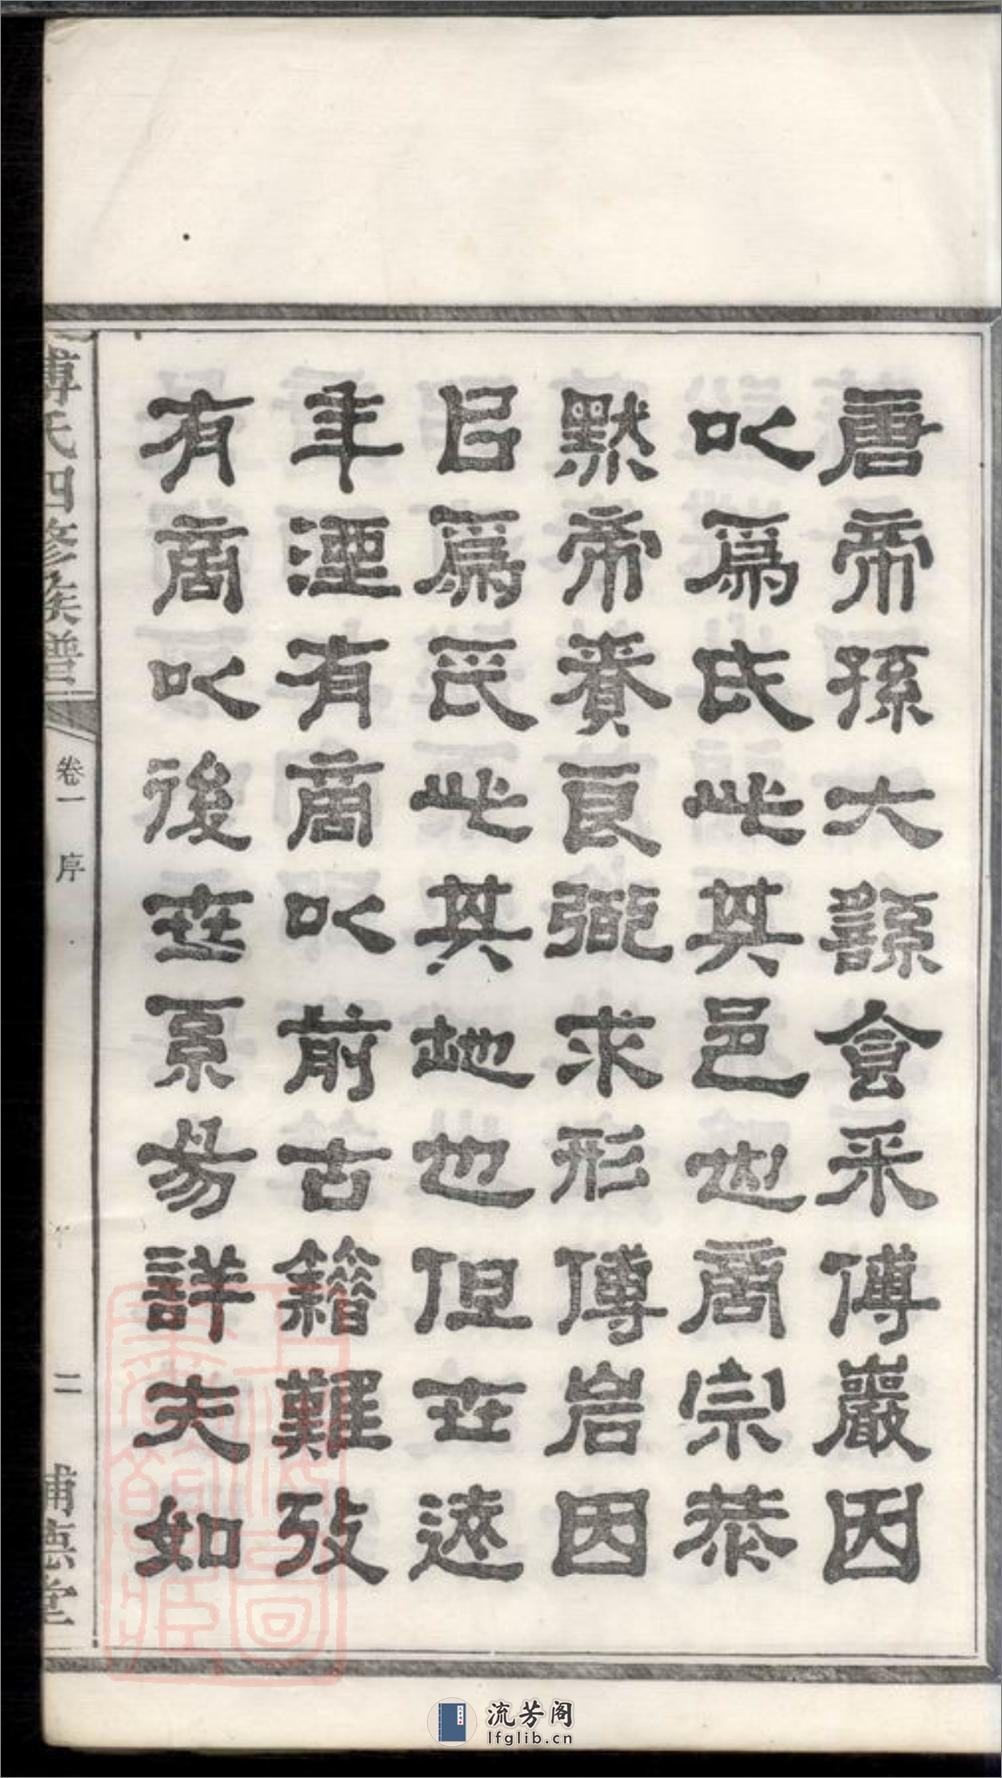 唐帝孫大繇食采傅巖因
以爲氏此其邑也商宗恭
默帝賚良弼求形傅岩因
㠯爲氏此其地也但世遠
年湮有商以前古籍難攷
有商以後世系易詳夫如
傅氏四修族譜
卷一 序
二
流芳阁
lfglib.cn